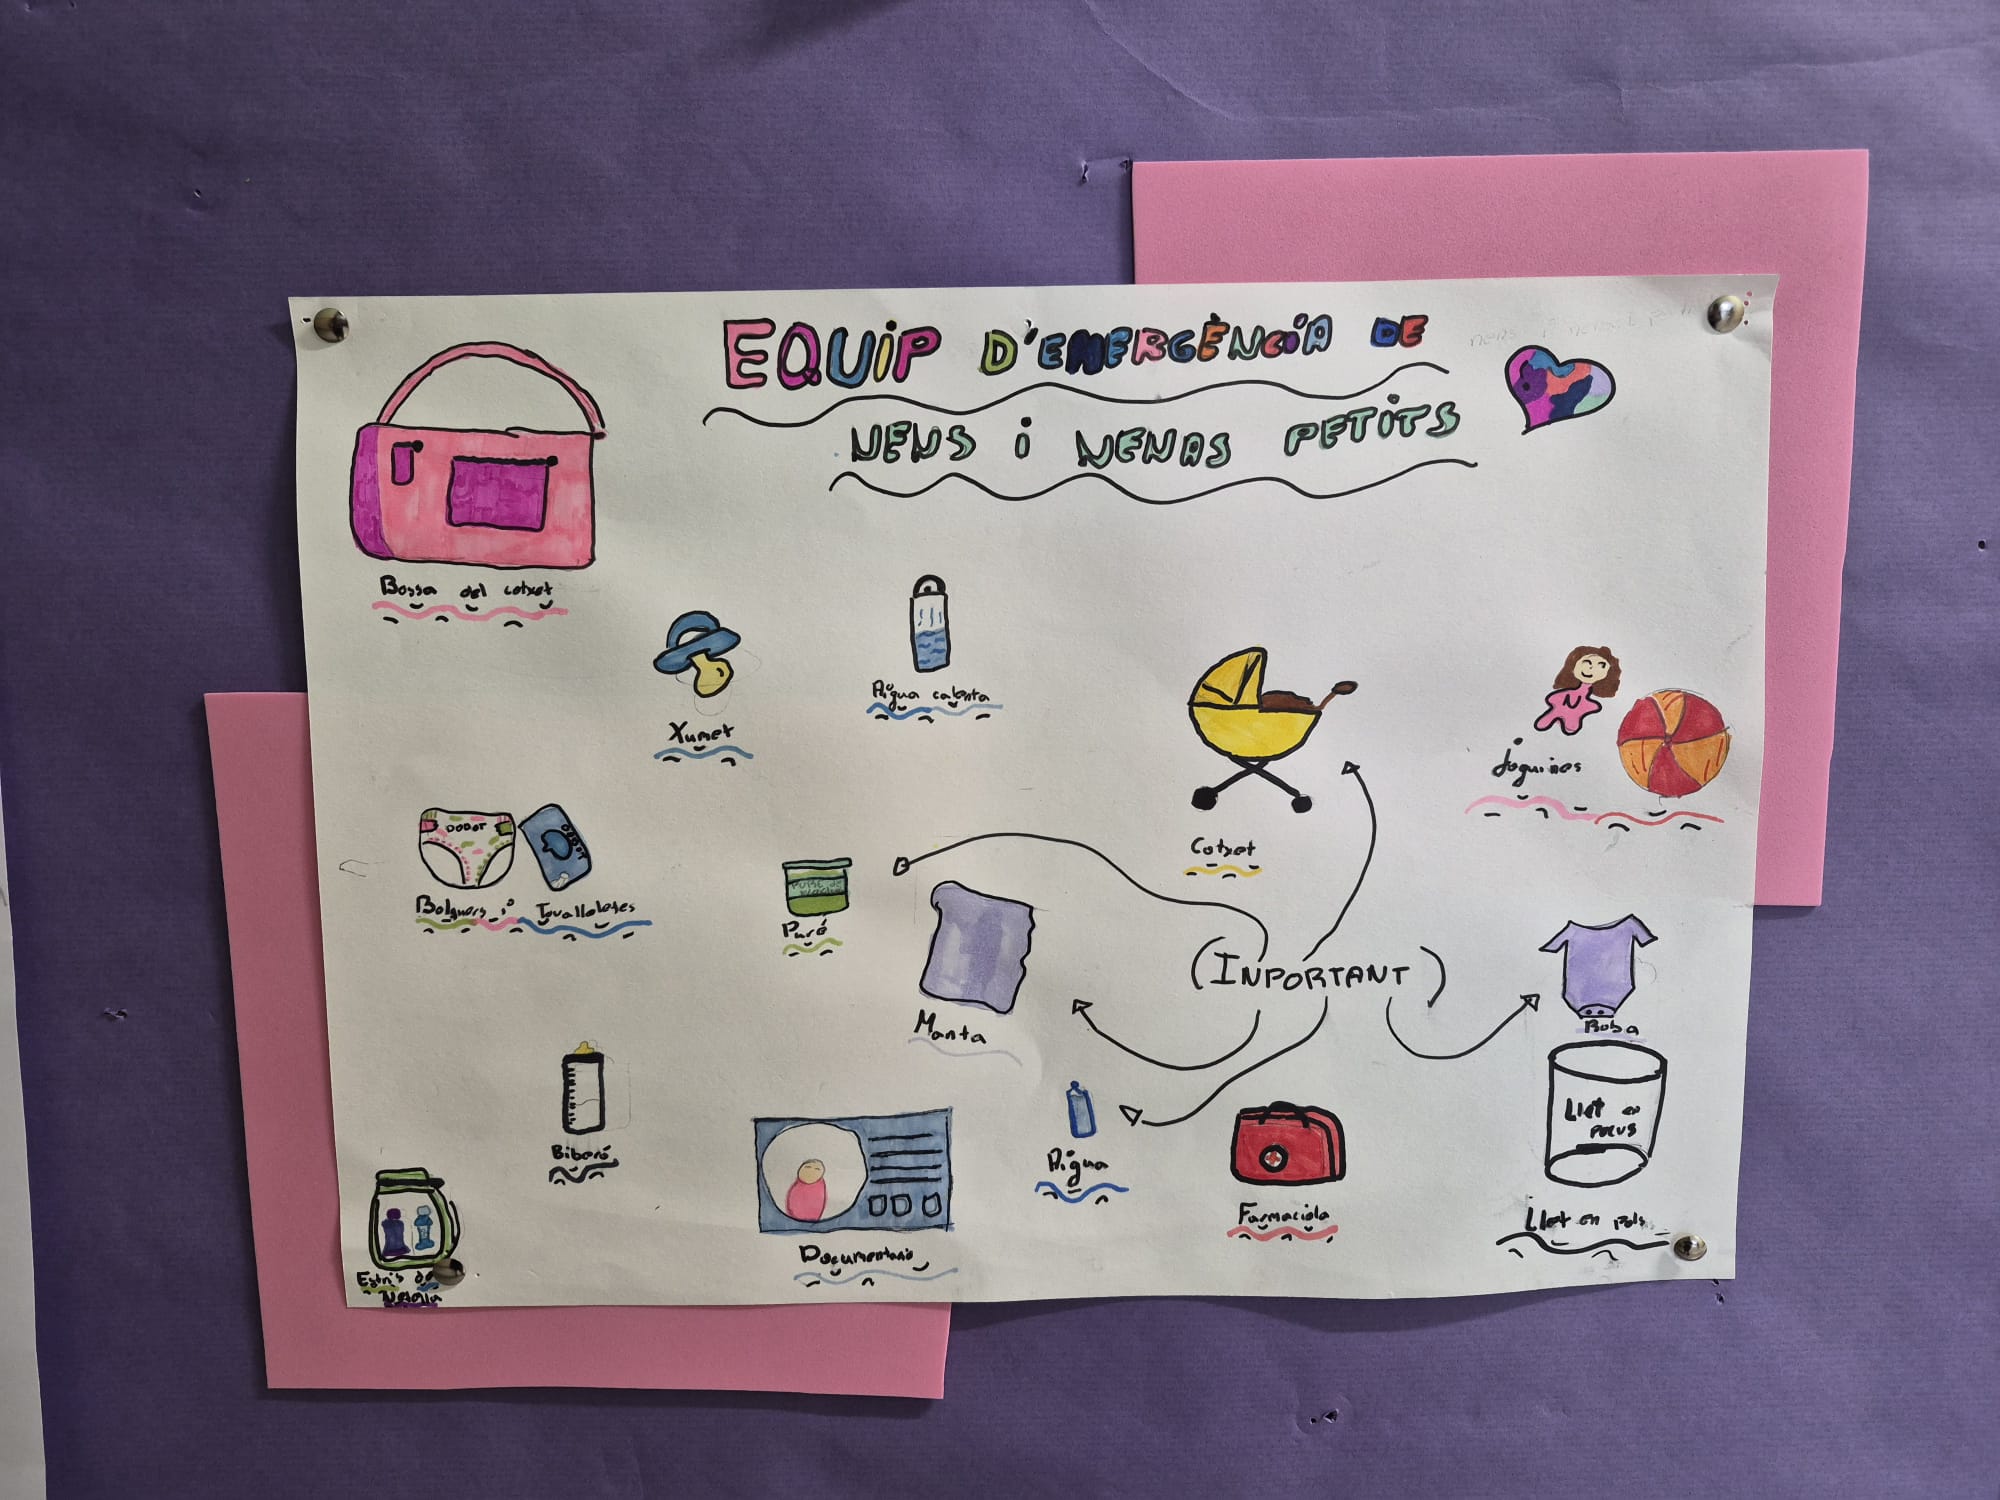 EQUIP D'EMERGÈNCIA DE
NENS i NENAS PETITS
Bossa del cotxet
Xumet
Aigua calenta
Cotxet
joguines
DODOT
Bolquers i Tovalloletes
Puré
Manta
(INPORTANT)
Roba
Biberó
Documentació
Aigua
Farmaciola
Llet en
POLVS
Llet en pols
Estris de
Neteja